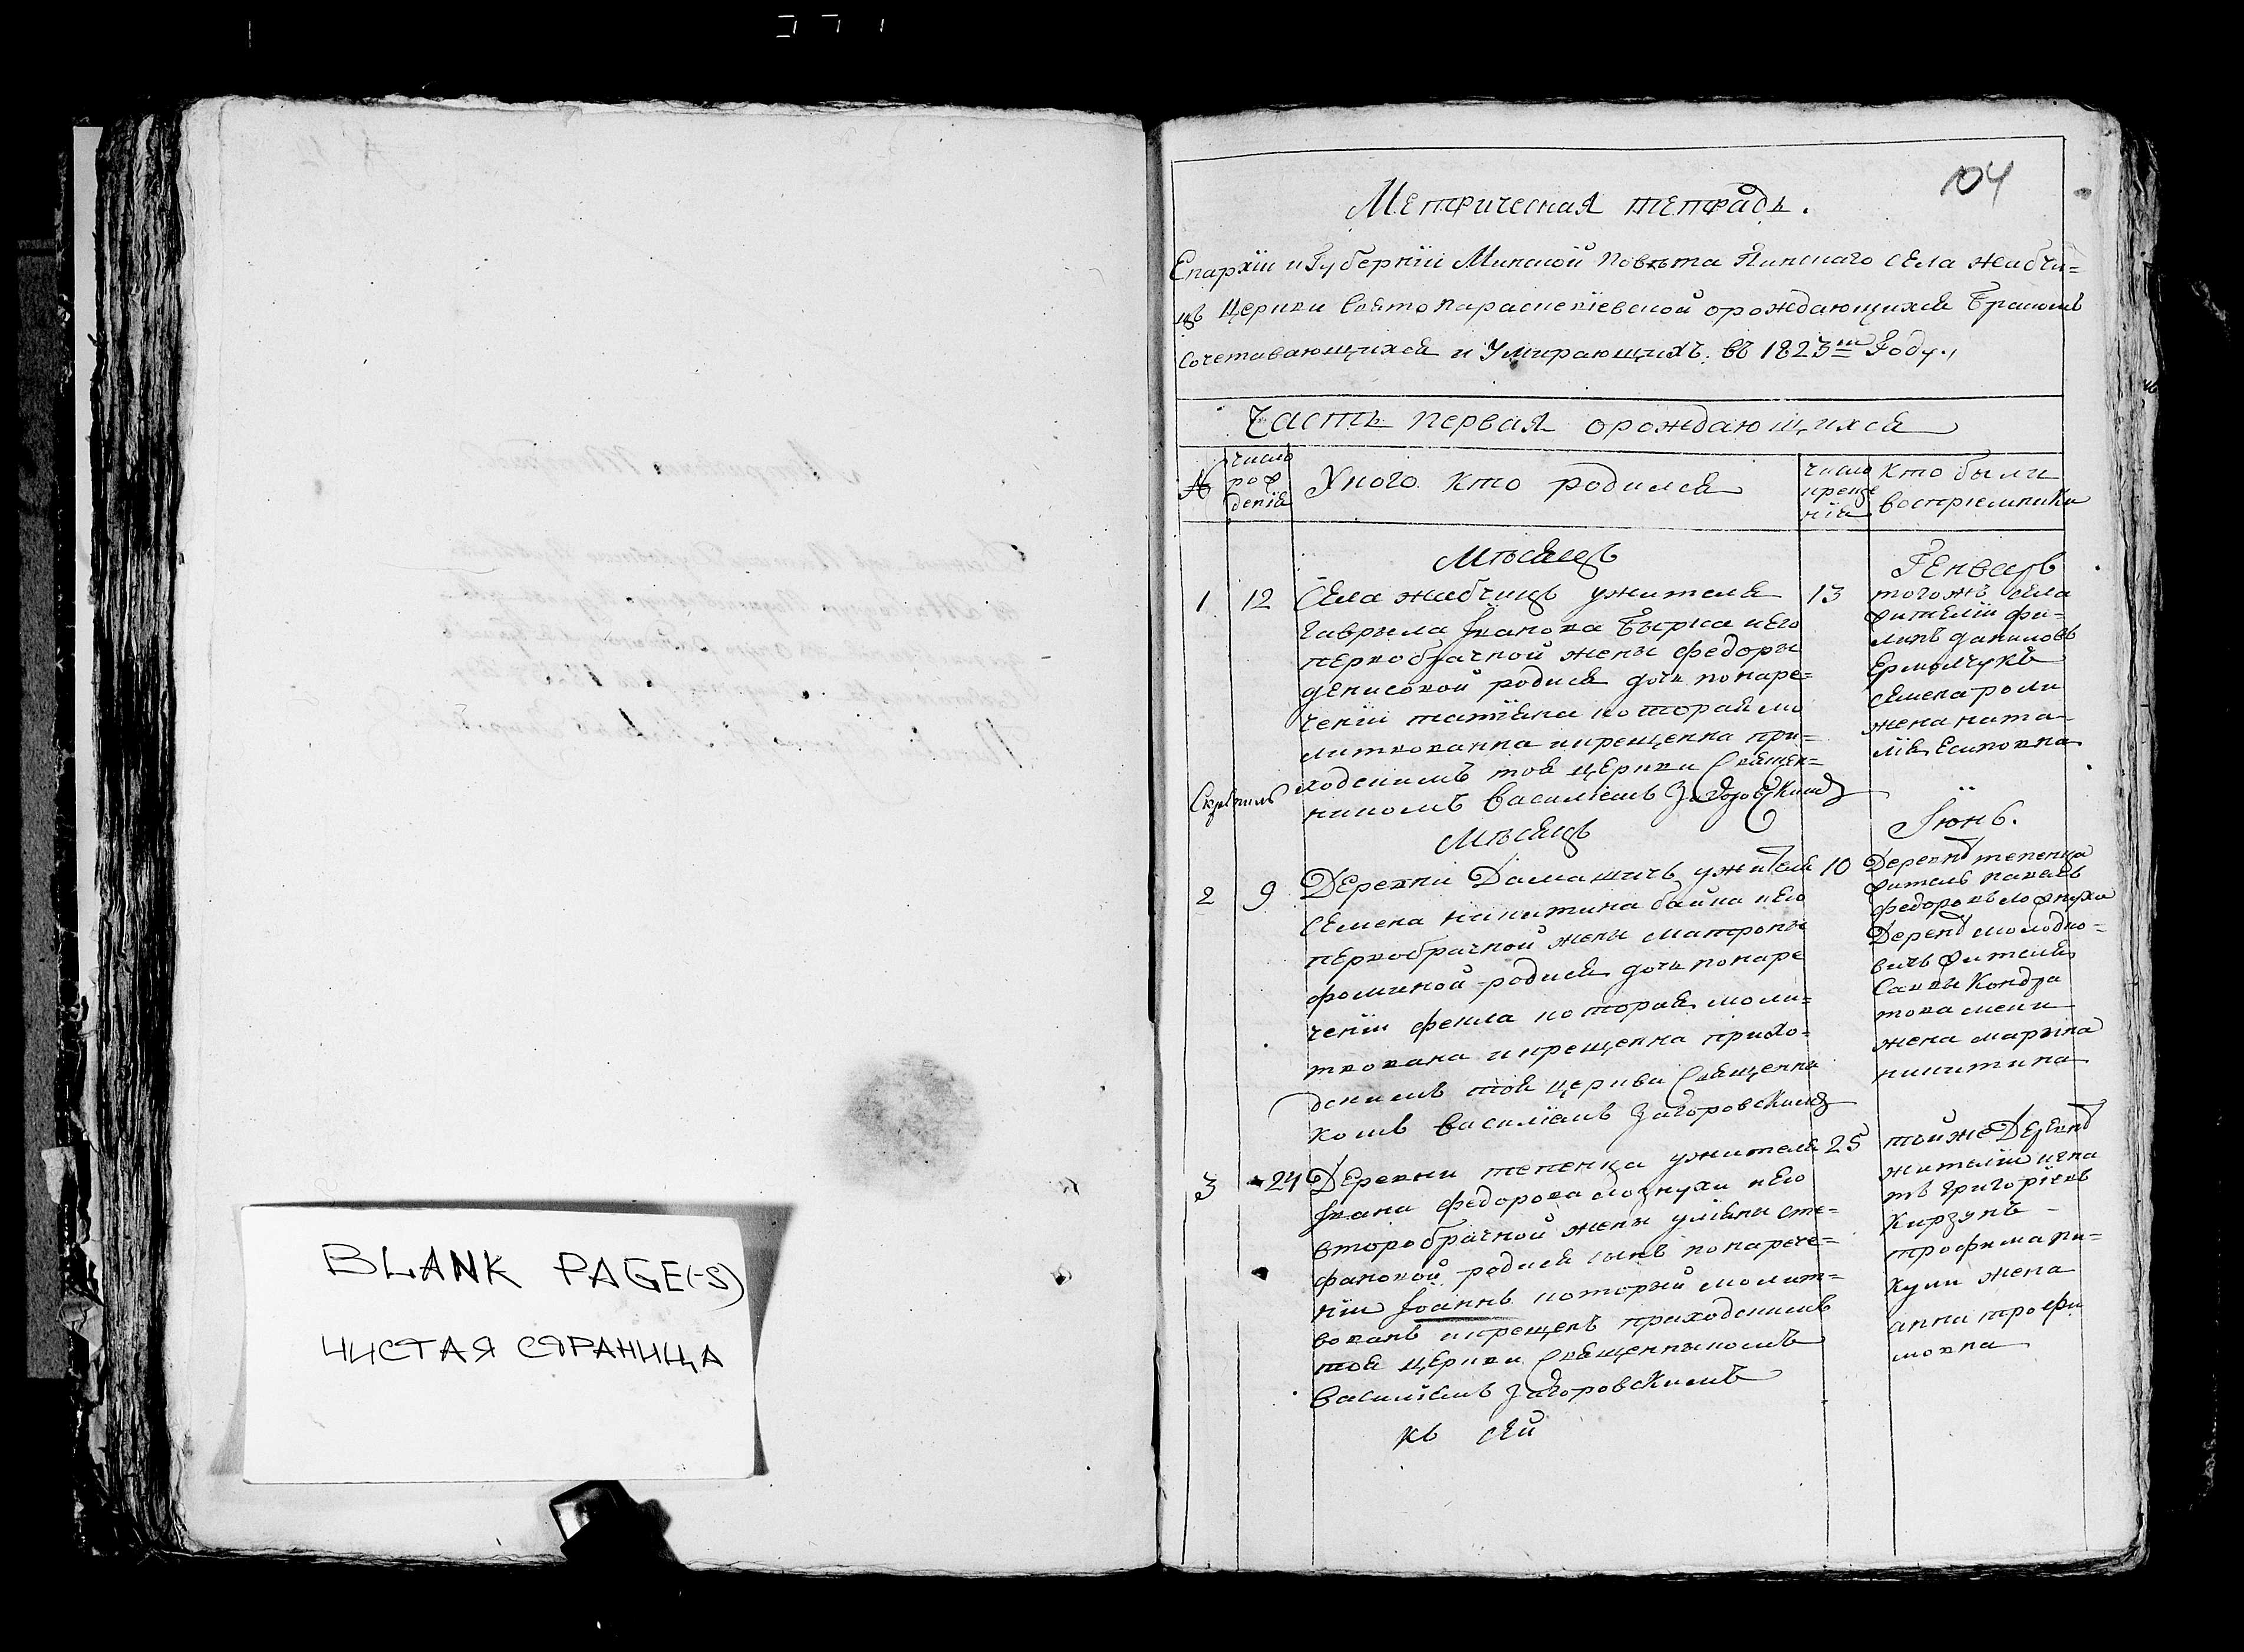 BLANK PAGE(-S)
ЧИСТАЯ СТРАНИЦА
104
Метрическая тетрадь.
Епархіи и Губерніи Минской Повѣта Пинскаго села Жабчи=
цъ Церкви Свято Параскевіевской орождающихся Бракомъ
сочетавающихся и Умирающихъ. въ 1823м Году.
Часть первая орождающихся
№
число рож денія
Укого кто родился
число креще нія
кто были восприемники
Мѣсяцъ
Генварь
1
12
Села жабчицъ ужителя
Гаврыла Іванова Бырка иего
первобрачной жены федоры
денисовой родися дочь понаре=
ченіи татіяна которая мо
литвованна икрещенна при=
ходскимъ тоя церкви Священ=
никомъ Василіемъ Загоровскимъ
13
тогожъ села
жителіи фи=
липъ даниловъ
Ермолчукъ
семена
жена ната=
лія Есиповна
Мѣсяцъ
Іюнь.
2
9
Деревни Дамашичъ ужителя
Семена никитина байка иего
первобрачной жены матроны
фоминой родися дочь понаре
ченіи фекла которая моли=
твована икрещенна прихо=
дскимъ тоя церкви Священни
комъ Василіемъ Загоровскимъ
10
Деревнѣ тепенца
житель павелъ
федоровъ
Деревнѣ молодко=
вичъ жителя
Саввы Кондра
това
жена марына
никитина
3
24
Деревни тепенца ужителя
Івана федорова иего
второбрачной жены уліяны сте=
фановой родися сынъ понарече=
ніи Іоаннъ который молит=
вованъ икрещенъ приходскимъ
тоя церкви Священныкомъ
Василіемъ Загоровскимъ
25
тойже Деревнѣ
жителіи игна
тъ григоріевъ
Кирзунъ
трофима пи=
кули жена
анна трофи
мовна
къ сей